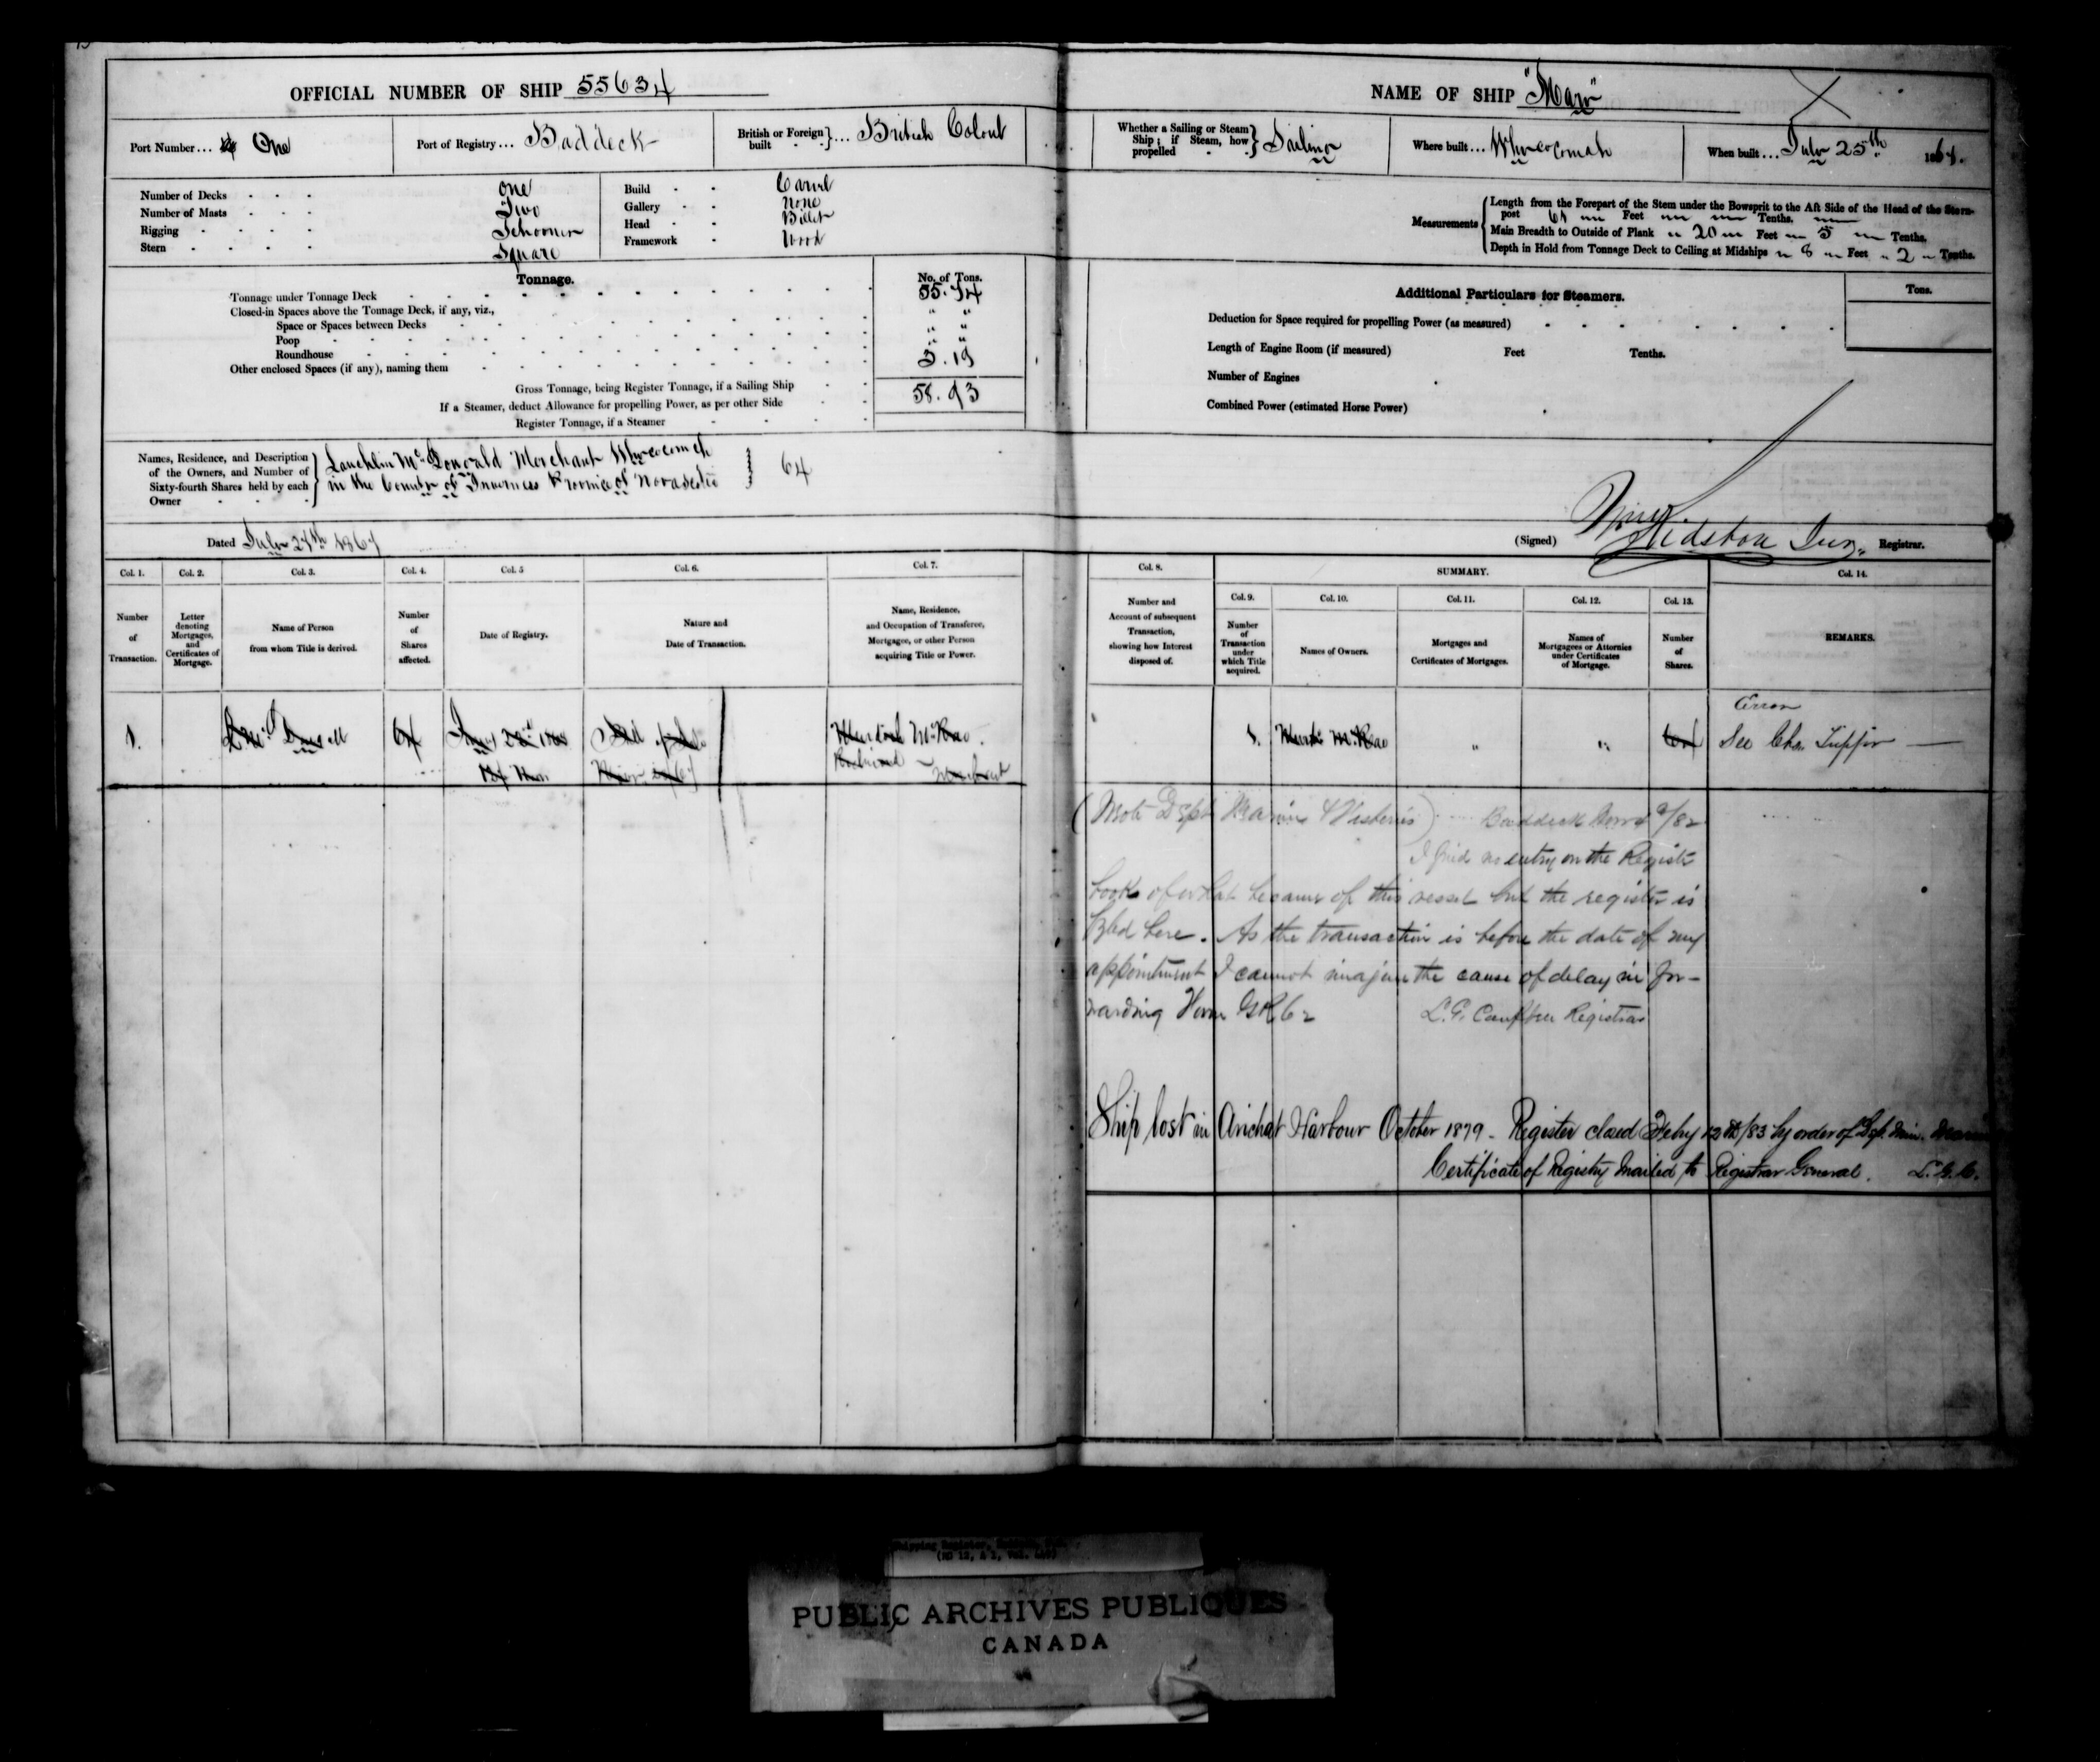 OFFICIAL NUMBER OF SHIP 55634
Port Number... One
Port of Registry... Baddeck
British or Foreign built } ... British Colonl
Number of Decks one
Number of Masts Two
Rigging Schooner
Stern Square
Build Carvel
Gallery None
Head Billet
Framework Wood
Tonnage. No. of Tons.
Tonnage under Tonnage Deck 55.74
Closed-in Spaces above the Tonnage Deck, if any, viz., " "
Space or Spaces between Decks " "
Poop " "
Roundhouse
Other enclosed Spaces (if any), naming them 3.19
Gross Tonnage, being Register Tonnage, if a Sailing Ship 58.93
If a Steamer, deduct Allowance for propelling Power, as per other Side
Register Tonnage, if a Steamer
Names, Residence, and Description of the Owners, and Number of Sixty-fourth Shares held by each Owner
Lauchlin McDonald Merchant Whycocomah
in the County of Inverness Province of Novascotia } 64
Dated July 27th 1867
Col. 1. Col. 2. Col. 3. Col. 4. Col. 5 Col. 6. Col. 7.
Number of Transaction.
Letter denoting Mortgages, and Certificates of Mortgage.
Name of Person from whom Title is derived.
Number of Shares affected.
Date of Registry.
Nature and Date of Transaction.
Name, Residence, and Occupation of Transferee, Mortgagee, or other Person acquiring Title or Power.
1. 64 Bill of Sale Murdoch McRae.
Merchant
NAME OF SHIP "Mary"
Whether a Sailing or Steam Ship; if Steam, how propelled } Sailing
Where built... Whycocomah
When built... July 25th 1867.
Measurements
Length from the Forepart of the Stem under the Bowsprit to the Aft Side of the Head of the Stern-
post Feet Tenths.
Main Breadth to Outside of Plank 20 Feet 5 Tenths.
Depth in Hold from Tonnage Deck to Ceiling at Midships 8 Feet 2 Tenths.
Additional Particulars for Steamers. Tons.
Deduction for Space required for propelling Power (as measured)
Length of Engine Room (if measured) Feet Tenths.
Number of Engines
Combined Power (estimated Horse Power)
(Signed) Registrar.
Col. 8. SUMMARY. Col. 14.
Col. 9. Col. 10. Col. 11. Col. 12. Col. 13.
Number and Account of subsequent Transaction, showing how Interest disposed of.
Number of Transaction under which Title acquired.
Names of Owners.
Mortgages and Certificates of Mortgages.
Names of Mortgagees or Attornies under Certificates of Mortgage.
Number of Shares.
REMARKS.
Error
1. McRae " " 64 See Chas Tupper
(Note Dept Marine & Fisheries) Baddeck 9/82
I find no entry on the Registr
book of what became of this vessel but the register is
filed here. As the transaction is before the date of my
appointment I cannot imagine the cause of delay in for-
warding Form
L.G. Campbell Registrar
Ship lost in Arichat Harbour October 1879 - Register closed Feby 12th/83 by order of Dep. Min. Marine
Certificate of Registry Mailed to Registrar General. L.G.C.
Shipping Register,
PUBLIC ARCHIVES PUBLIQUES
CANADA